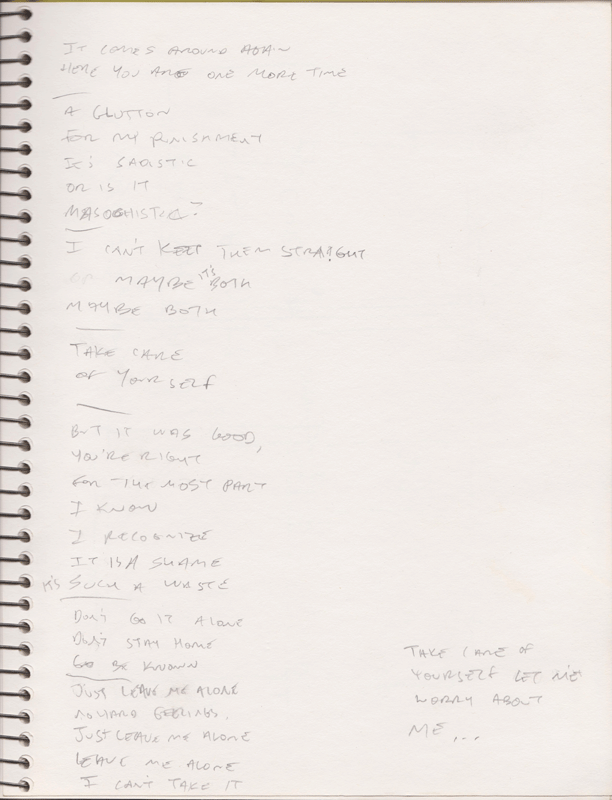 IT COMES AROUND AGAIN
HERE YOU ARE ONE MORE TIME
A GLUTTON
FOR MY PUNISHMENT
IT'S SADISTIC
OR IS IT
MASOCHISTIC?
I CAN'T KEEP THEM STRAIGHT
OR MAYBE IT'S BOTH
MAYBE BOTH
TAKE CARE
OF YOURSELF
BUT IT WAS GOOD,
YOU'RE RIGHT
FOR THE MOST PART
I KNOW
I RECOGNIZE
IT IS A SHAME
IT'S SUCH A WASTE
DON'T GO IT ALONE
DON'T STAY HOME
GO BE KNOWN
JUST LEAVE ME ALONE
NO HARD FEELINGS.
JUST LEAVE ME ALONE
LEAVE ME ALONE
I CAN'T TAKE IT
TAKE CARE OF
YOURSELF LET ME
WORRY ABOUT
ME...